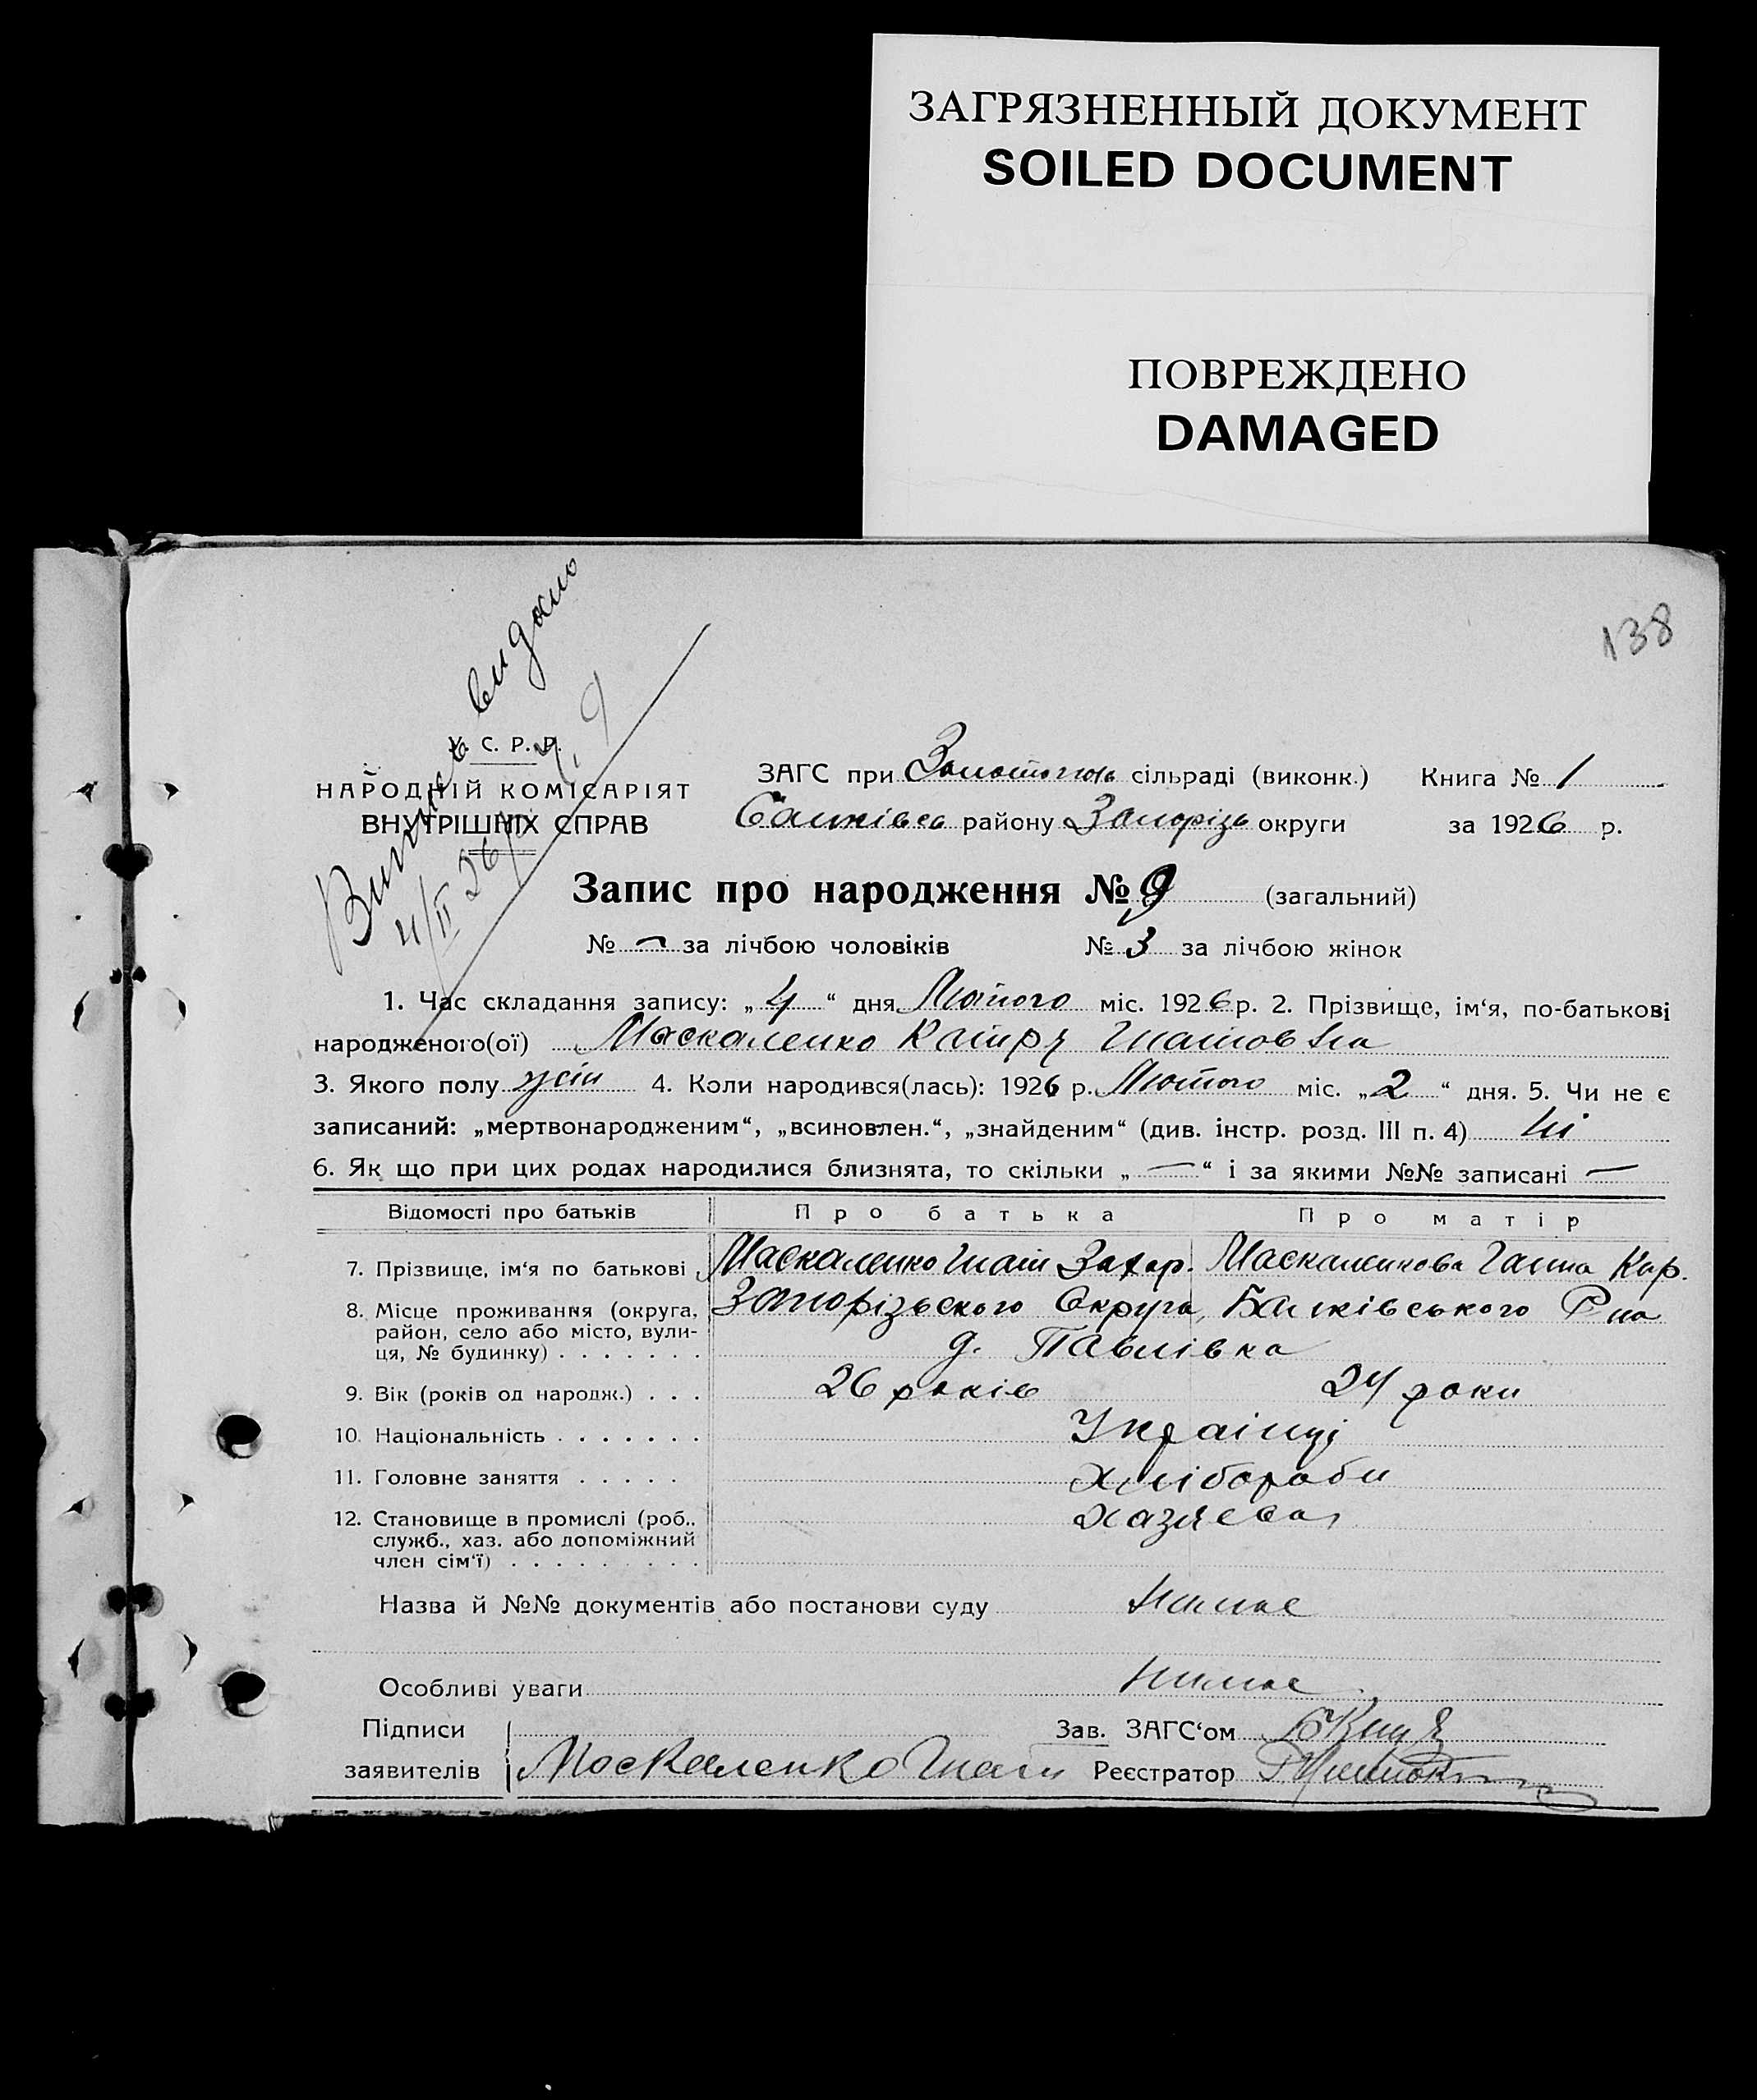 ЗАГРЯЗНЕННЫЙ ДОКУМЕНТ
SOILED DOCUMENT
ПОВРЕЖДЕНО
DAMAGED
138
Випись видано
4/II 26
У. С. Р. Р.
НАРОДНІЙ КОМІСАРІЯТ
ВНУТРІШНІХ СПРАВ
ЗАГС при сільраді (виконк.) Книга № 1
району Запорізь округи за 1926 р.
Запис про народження № 9 (загальний)
№ — за лічбою чоловіків № 3 за лічбою жінок
1. Час складання запису: „4“ дня Лютого міс. 1926 р. 2. Прізвище, ім‘я, по-батькові
народженого(ої) Маскаленко
3. Якого полу жін 4. Коли народився(лась): 1926 р. Лютого міс. „2“ дня. 5. Чи не є
записаний: „мертвонародженим“, „всиновлен.“, „знайденим“ (див. інстр. розд. III п. 4) Ні
6. Як що при цих родах народилися близнята, то скільки „—“ і за якими №№ записані —
Відомості про батьків Про батька Про матір
7. Прізвище, ім‘я по батькові Маскаленко Захар. Маскаленкова Ганна Кир.
8. Місце проживання (округа, Запорізського Округа, Балківського Р на
район, село або місто, вули-
ця, № будинку) . . . . . . . д. Павлівка
9. Вік (років од народж.) . . . 26 років 24 роки
10. Національність . . . . . . . Українці
11. Головне заняття . . . . . Хлібораби
12. Становище в промислі (роб.. Хазяева
служб., хаз. або допоміжний
член сім‘ї) . . . . . . . . .
Назва й №№ документів або постанови суду Нимае
Особливі уваги Нимае
Підписи Зав. ЗАГС‘ом
заявителів Москаленко Реєстратор